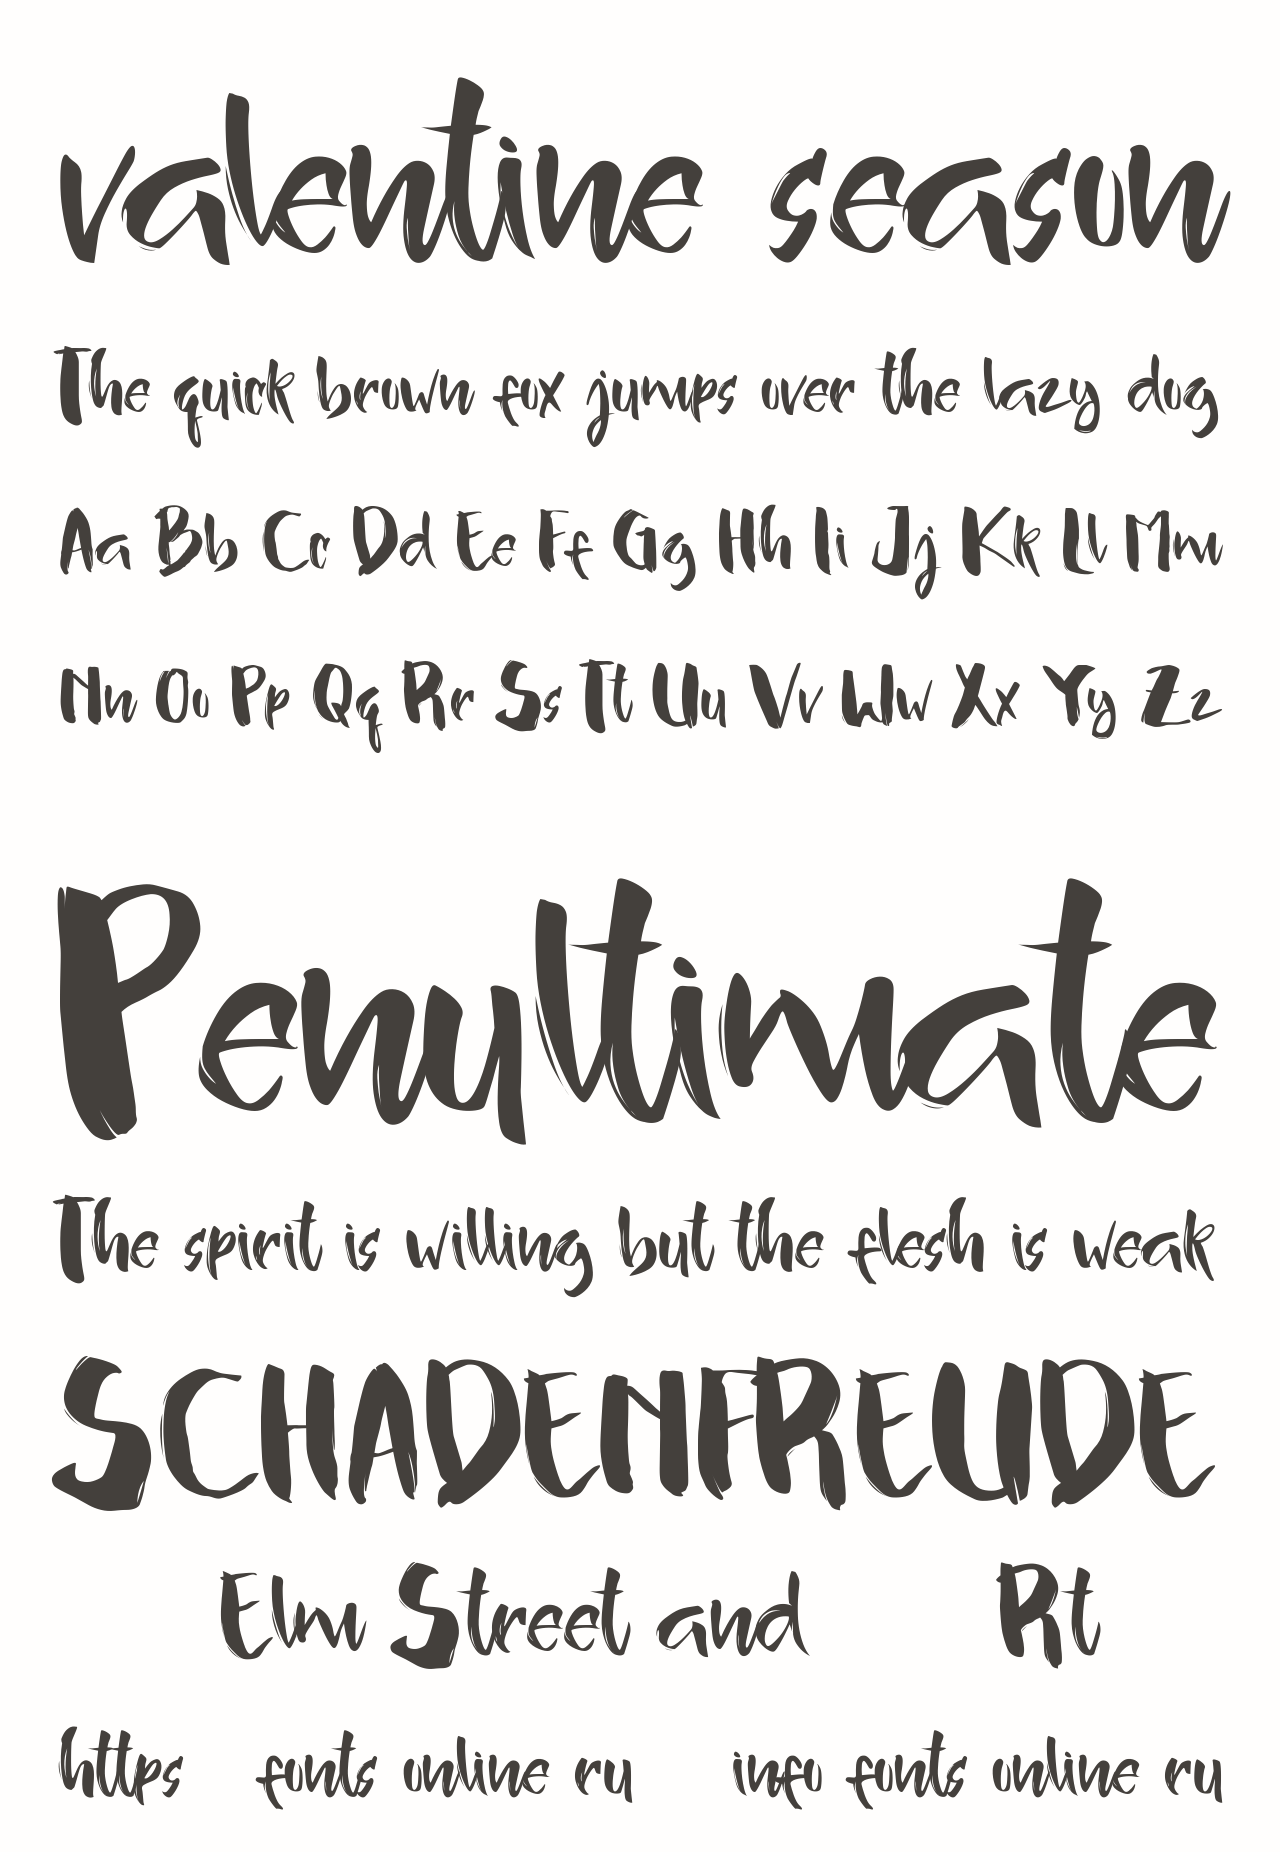 valentine season
The quick brown fox jumps over the lazy dog
Aa Bb Cc Dd Ee Ff Gg Hh Ii Jj Kk Ll Mm
Nn Oo Pp Qq Rr Ss Tt Uu Vv Ww Xx Yy Zz
Penultimate
The spirit is willing but the flesh is weak
SCHADENFREUDE
Elm Street and Rt
https fonts online ru info fonts online ru